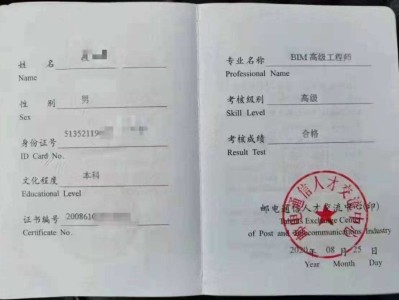 姓 名
Name
性 别 男
Sex
身份证号 51352119
ID Card No.
文化程度 本科
Educational Level
证书编号 2008610
Certificate No.
专业名称 BIM 高级工程师
Professional Name
考核级别 高级
Skill Level
考核成绩 合格
Result Test
邮电通信人才交流中心(印)
Talents Exchange Center
of Post and Telecommunications Industry
2020 年 08 月 25 日
Year Month Day
邮电通信人才交流中心